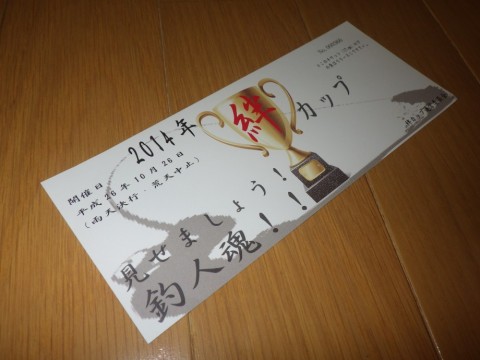 2014年
絆カップ
開催日
平成26年10月26日
(雨天決行・荒天中止)
見せましょう!
釣人魂!!